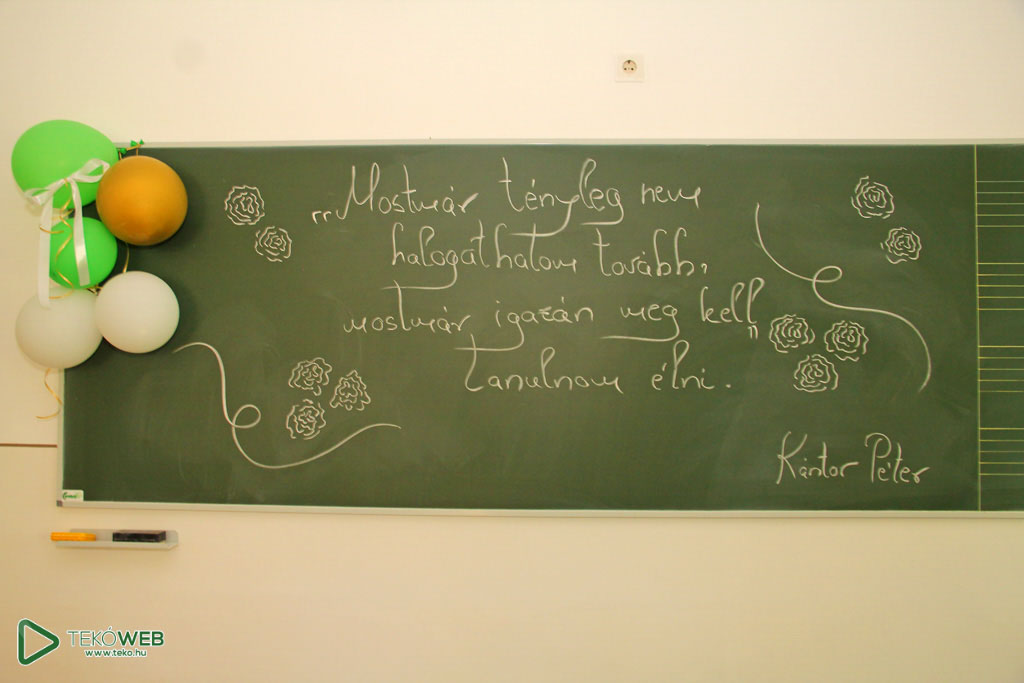 „Mostmár tényleg nem
halogathatom tovább,
mostmár igazán meg kell
tanulnom élni."
Kántor Péter
TEKÓWEB
www.teko.hu